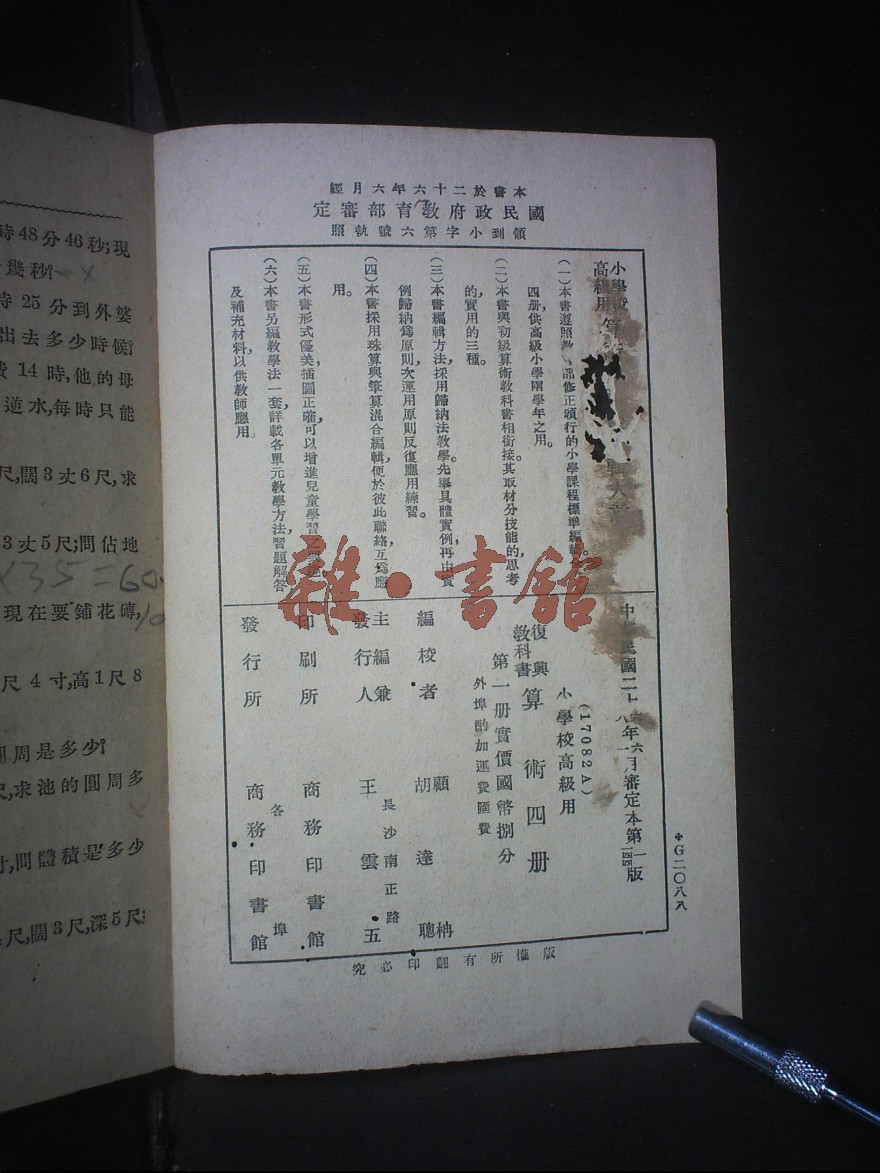 本書於二十六年六月經
國民政府教育部審定
領到小字第六號執照
小學校
高級用
(一)本書遵照教部修正頒行的小學課程標準編輯。
四册,供高級小學兩學年之用。
(二)本書與初級算術教科書相銜接,其取材分技能的思考
的,實用的三種。
(三)本書編輯方法,採用歸納法教學,先舉具體實例,再由實
例歸納爲原則,次運用原則反復應用練習。
(四)本書採用珠算與筆算混合編輯,便於彼此聯絡,互爲應
用。
(五)本書形式優美,插圖正確,可以增進兒童學習之
(六)本書另編教學法一套,詳載各單元教學方法,習題解答
及補充材料,以供教師應用。
中 民國二十六年六月審定本第一版
八年一月
(17082A)
小學校高級用
復興
教科書
算術四册
第一册實價國幣捌分
外埠酌加運費匯費
編校者 顧枏
胡達聰
主編兼
發行人 王雲五
長沙南正路
印刷所 商務印書館
發行所 商務印書館
各埠
✤G二〇八八
版權所有翻印必究
雜·書館
時48分46秒;現
幾秒?
時25分到外婆
出去多少時候?
費14時,他的母
逆水,每時只能
尺,闊3丈6尺,求
3丈5尺;問佔地
×35=60
現在要鋪花磚,
尺4寸,高1尺8
圓周是多少?
尺,求池的圓周多
寸,問體積是多少
尺,闊3尺,深5尺;